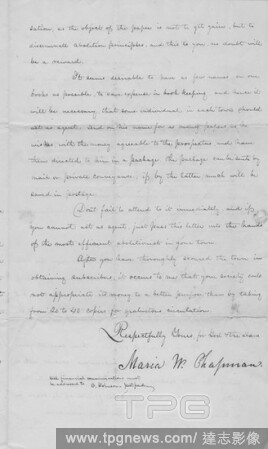 sation, as the object of the paper is not to get gain, but to
disseminate abolition principles, and this to you no doubt will
be a reward.
It seems desirable to have as few names on our
books as possible, to save expense in book keeping, and hence it
will be necessary that some individual in each town should
act as agent. Send on his name for as many papers as he
wishes, with the money agreeable to the prospectus and have
them directed to him in a package. The package can be sent by
mail or private conveyance; if by the latter much will be
saved in postage.
Don't fail to attend to it immediately and if
you cannot act as agent, just pass this letter into the hands
of the most efficient abolitionist in your town.
After you have thoroughly scoured the town in
obtaining subscribers, it seems to me that your society could
not appropriate its money to a better purpose than by taking
from 20 to 40 copies for gratuitous circulation.
Respectfully Yours for God & the slave
Maria W. Chapman.
communications must
be addressed to
TPG
www.tpgnews.com/達志影像